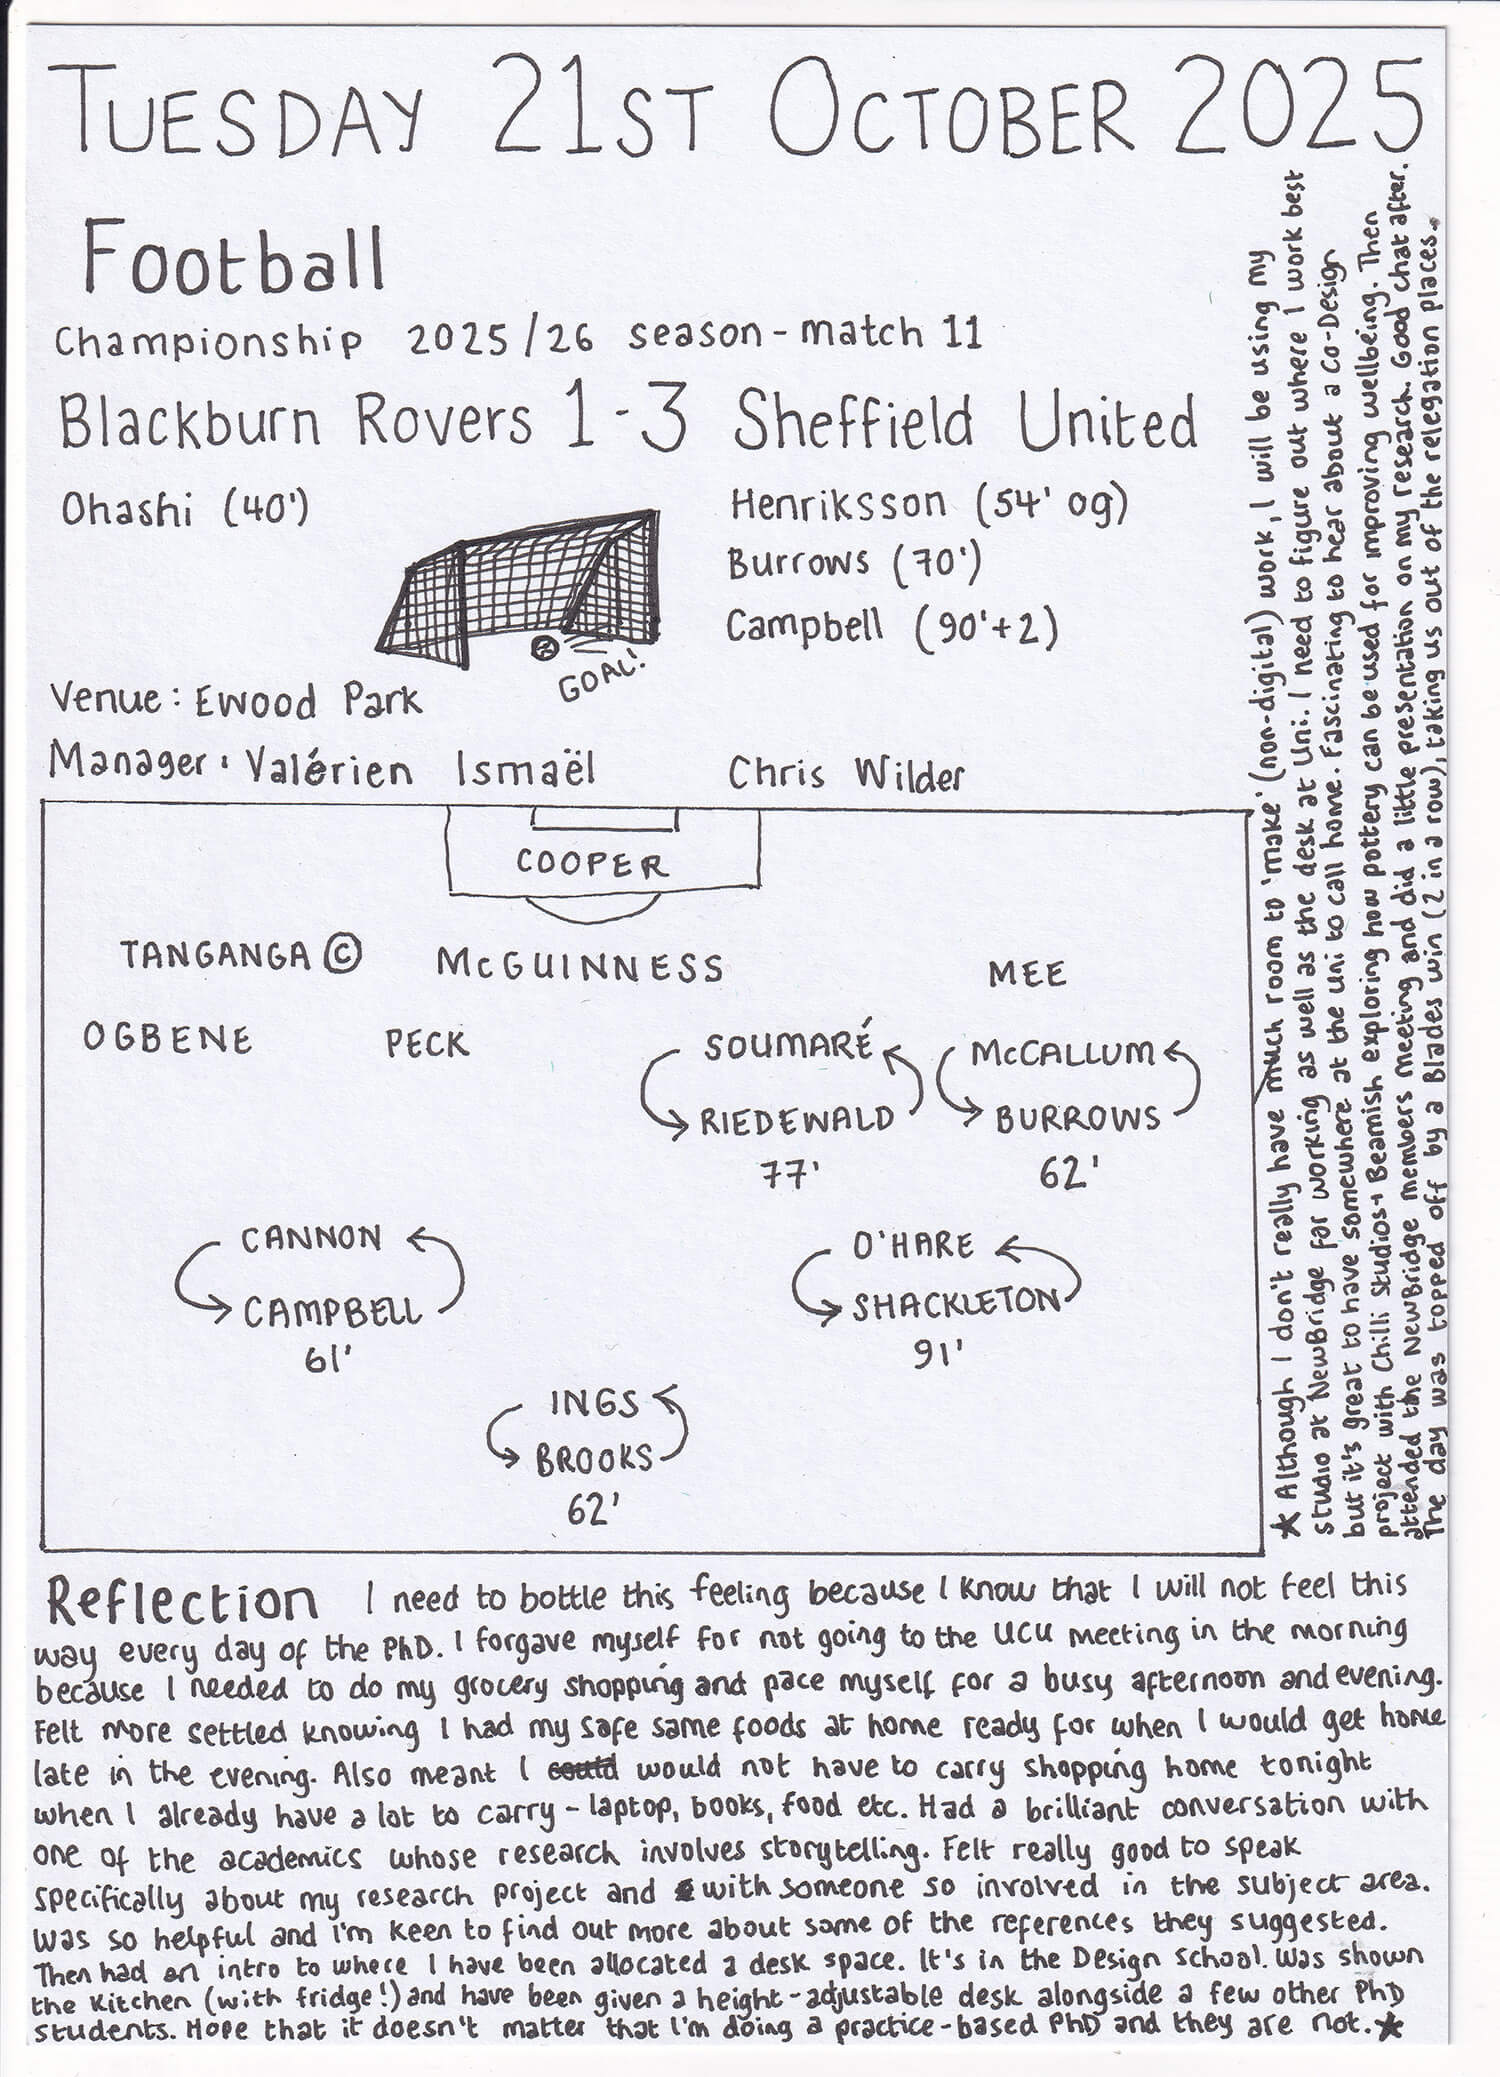 TUESDAY 21ST OCTOBER 2025
Football
Championship 2025/26 season - match 11
Blackburn Rovers 1-3 Sheffield United
Ohashi (40')
Henriksson (54' og)
Burrows (70')
Campbell (90'+2)
GOAL!
Venue: Ewood Park
Manager: Valérien Ismaël Chris Wilder
COOPER
TANGANGA © McGUINNESS MEE
OGBENE PECK SOUMARÉ McCALLUM
RIEDEWALD BURROWS
77' 62'
CANNON O'HARE
CAMPBELL SHACKLETON
61' 91'
INGS
BROOKS
62'
Reflection I need to bottle this feeling because I know that I will not feel this
way every day of the PhD. I forgave myself for not going to the UCU meeting in the morning
because I needed to do my grocery shopping and pace myself for a busy afternoon and evening.
Felt more settled knowing I had my safe same foods at home ready for when I would get home
late in the evening. Also meant I could would not have to carry shopping home tonight
when I already have a lot to carry - laptop, books, food etc. Had a brilliant conversation with
one of the academics whose research involves storytelling. Felt really good to speak
specifically about my research project and with someone so involved in the subject area.
Was so helpful and I'm keen to find out more about some of the references they suggested.
Then had an intro to where I have been allocated a desk space. It's in the Design School. Was shown
the kitchen (with fridge!) and have been given a height-adjustable desk alongside a few other PhD
students. Hope that it doesn't matter that I'm doing a practice-based PhD and they are not.★
★ Although I don't really have much room to 'make' (non-digital) work, I will be using my
studio at NewBridge for working as well as the desk at Uni. I need to figure out where I work best
but it's great to have somewhere at the uni to call home. Fascinating to hear about a Co-Design
project with Chilli Studios + Beamish exploring how pottery can be used for improving wellbeing. Then
attended the NewBridge members meeting and did a little presentation on my research. Good chat after.
The day was topped off by a Blades win (2 in a row), taking us out of the relegation places.